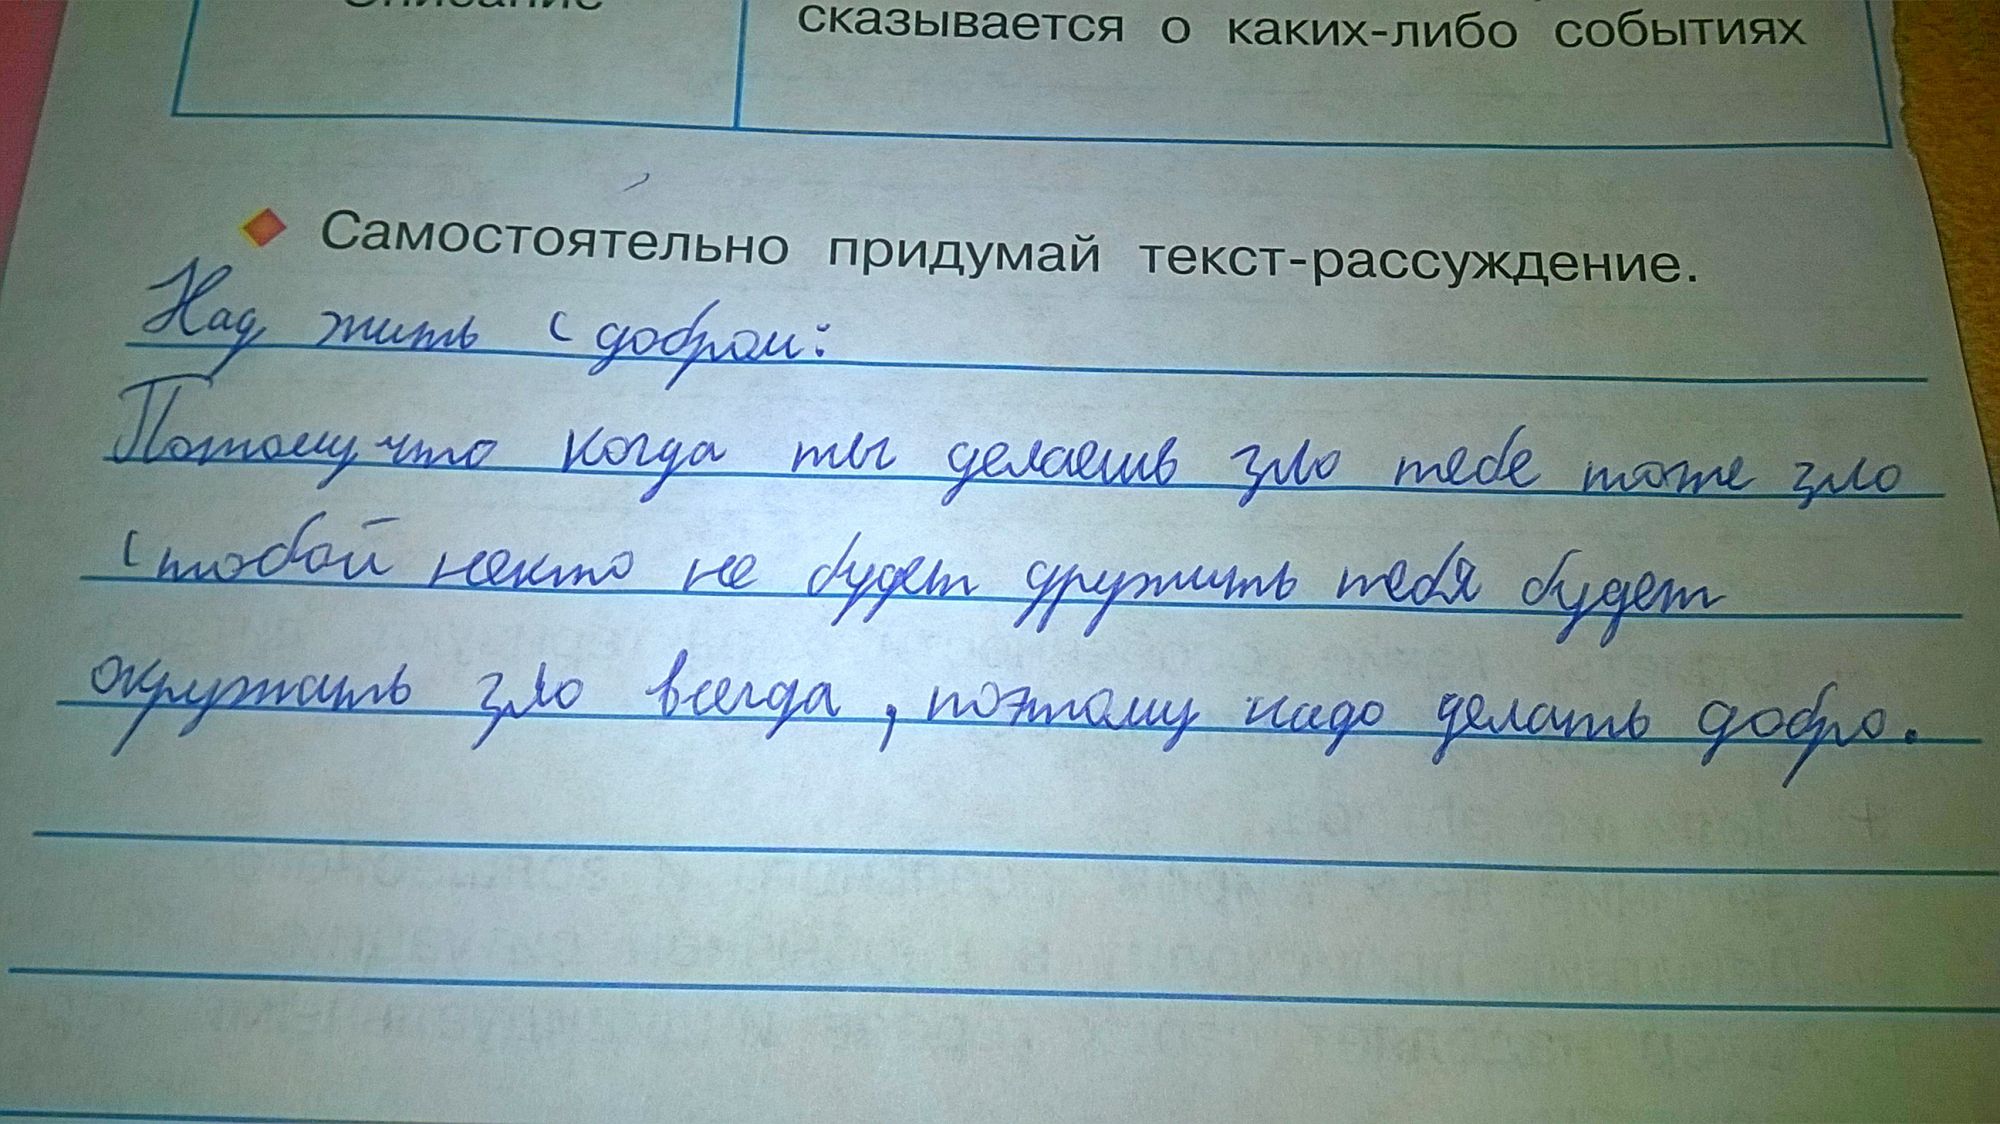 Описание
сказывается о каких-либо событиях
Самостоятельно придумай текст-рассуждение.
Над жить с добром:
Потому что когда ты делаешь зло тебе тоже зло
с тобой некто не будет дружить тебя будет
окружать зло всегда, поэтому надо делать добро.